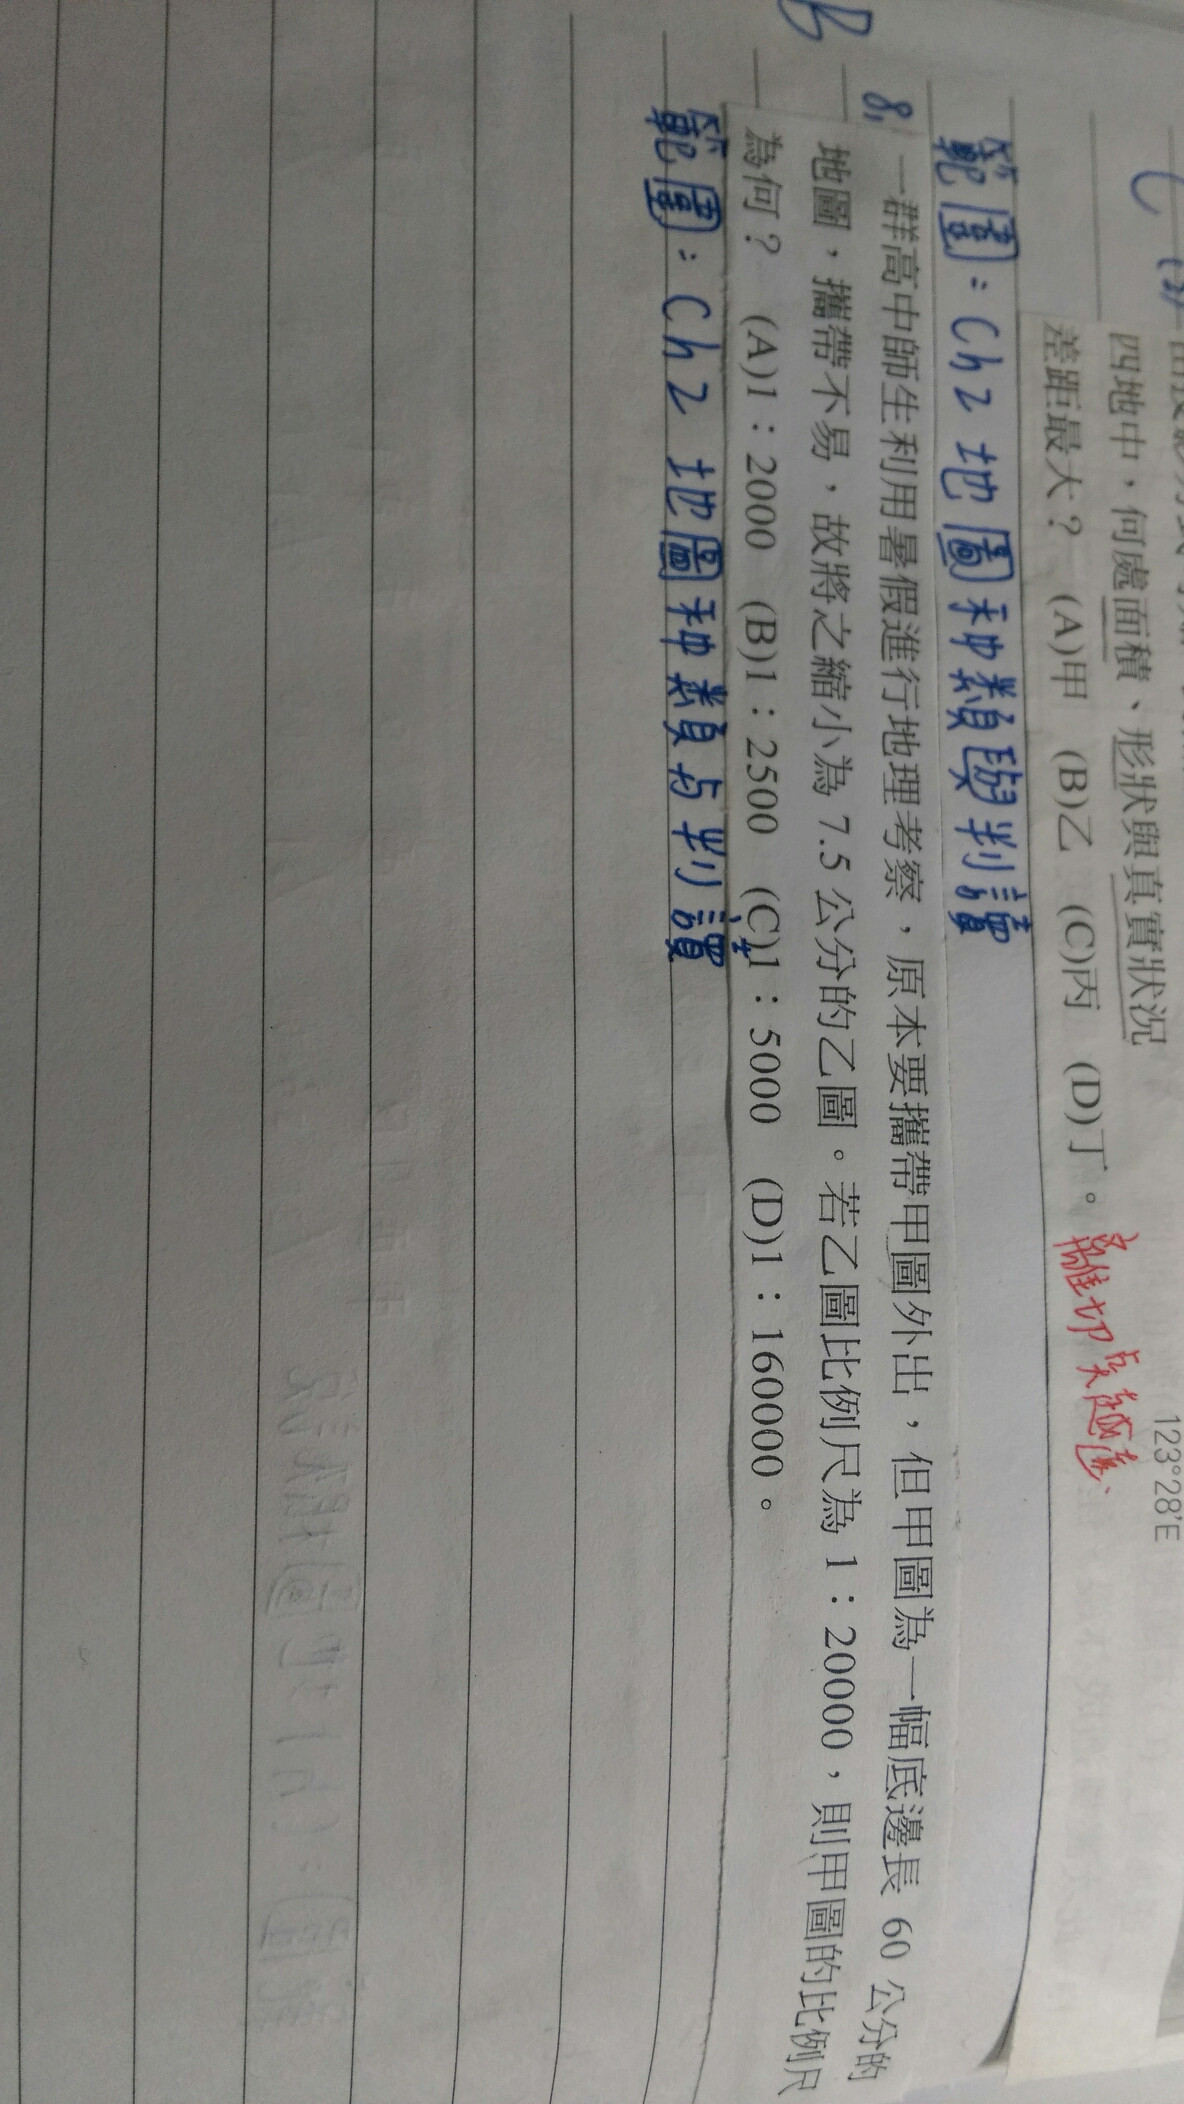 四地中，何處面積、形狀與真實狀況
差距最大？ (A)甲 (B)乙 (C)丙 (D)丁。
123°28'E
範圍：Ch2 地圖種類與判讀
B
8.
一群高中師生利用暑假進行地理考察，原本要攜帶甲圖外出，但甲圖為一幅底邊長 60 公分的
地圖，攜帶不易，故將之縮小為 7.5 公分的乙圖。若乙圖比例尺為 1：20000，則甲圖的比例尺
為何？ (A)1：2000 (B)1：2500 (C)1：5000 (D)1：160000。
範圍：Ch2 地圖種類与判讀